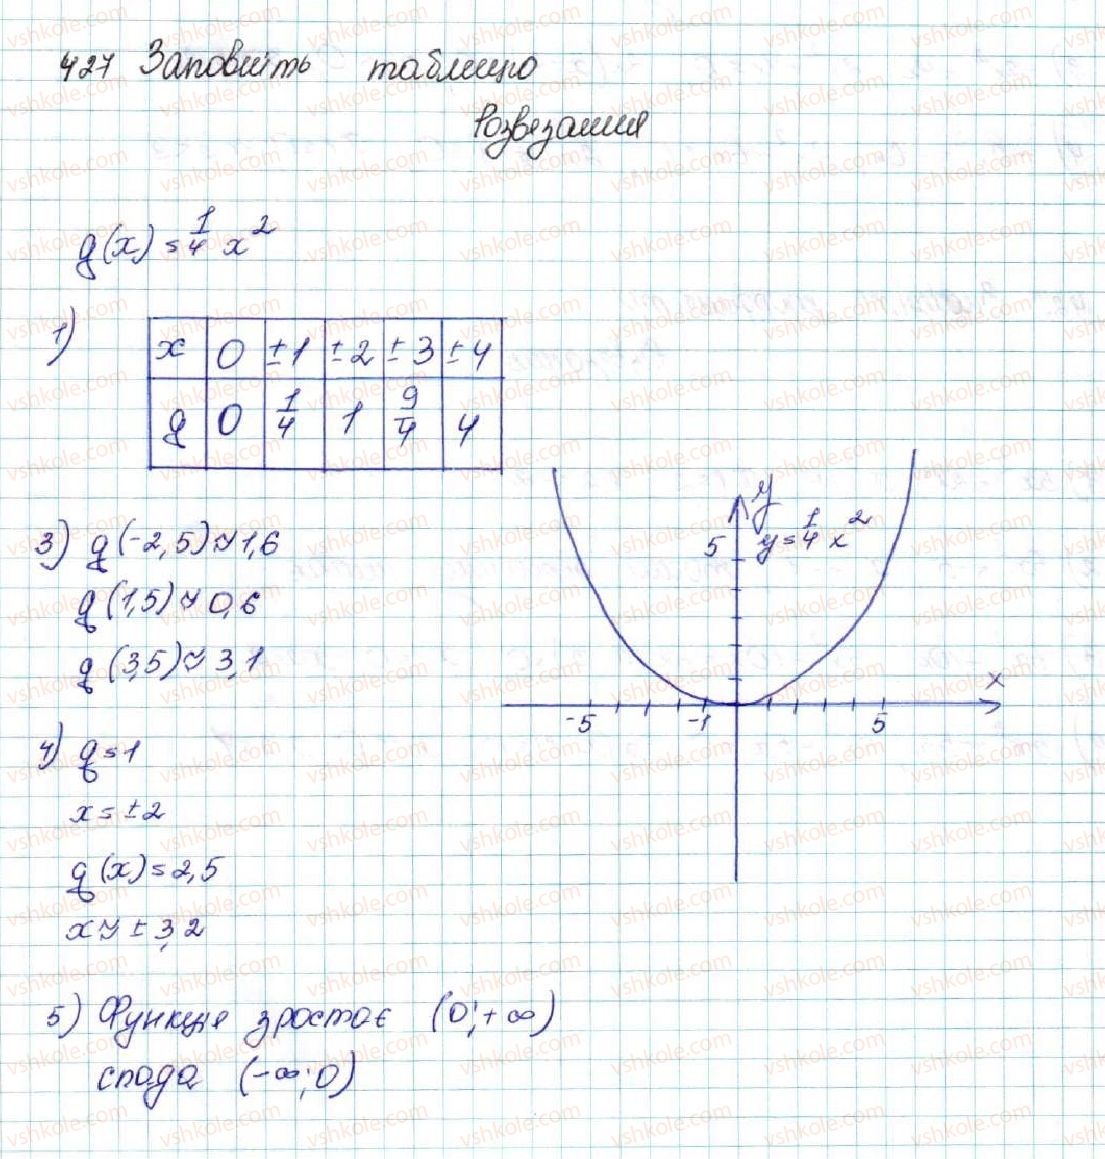 427 Заповніть таблицю
Розвезання
g(x) = 1/4 x²
1)
x 0 ±1 ±2 ±3 ±4
g 0 1/4 1 9/4 4
y
y = 1/4 x²
5
x
-5 -1 5
3) g(-2,5) ≈ 1,6
g(1,5) ≈ 0,6
g(3,5) ≈ 3,1
4) g = 1
x = ±2
g(x) = 2,5
x ≈ ±3,2
5) Функція зростає (0; +∞)
спада (-∞; 0)
vshkole.com